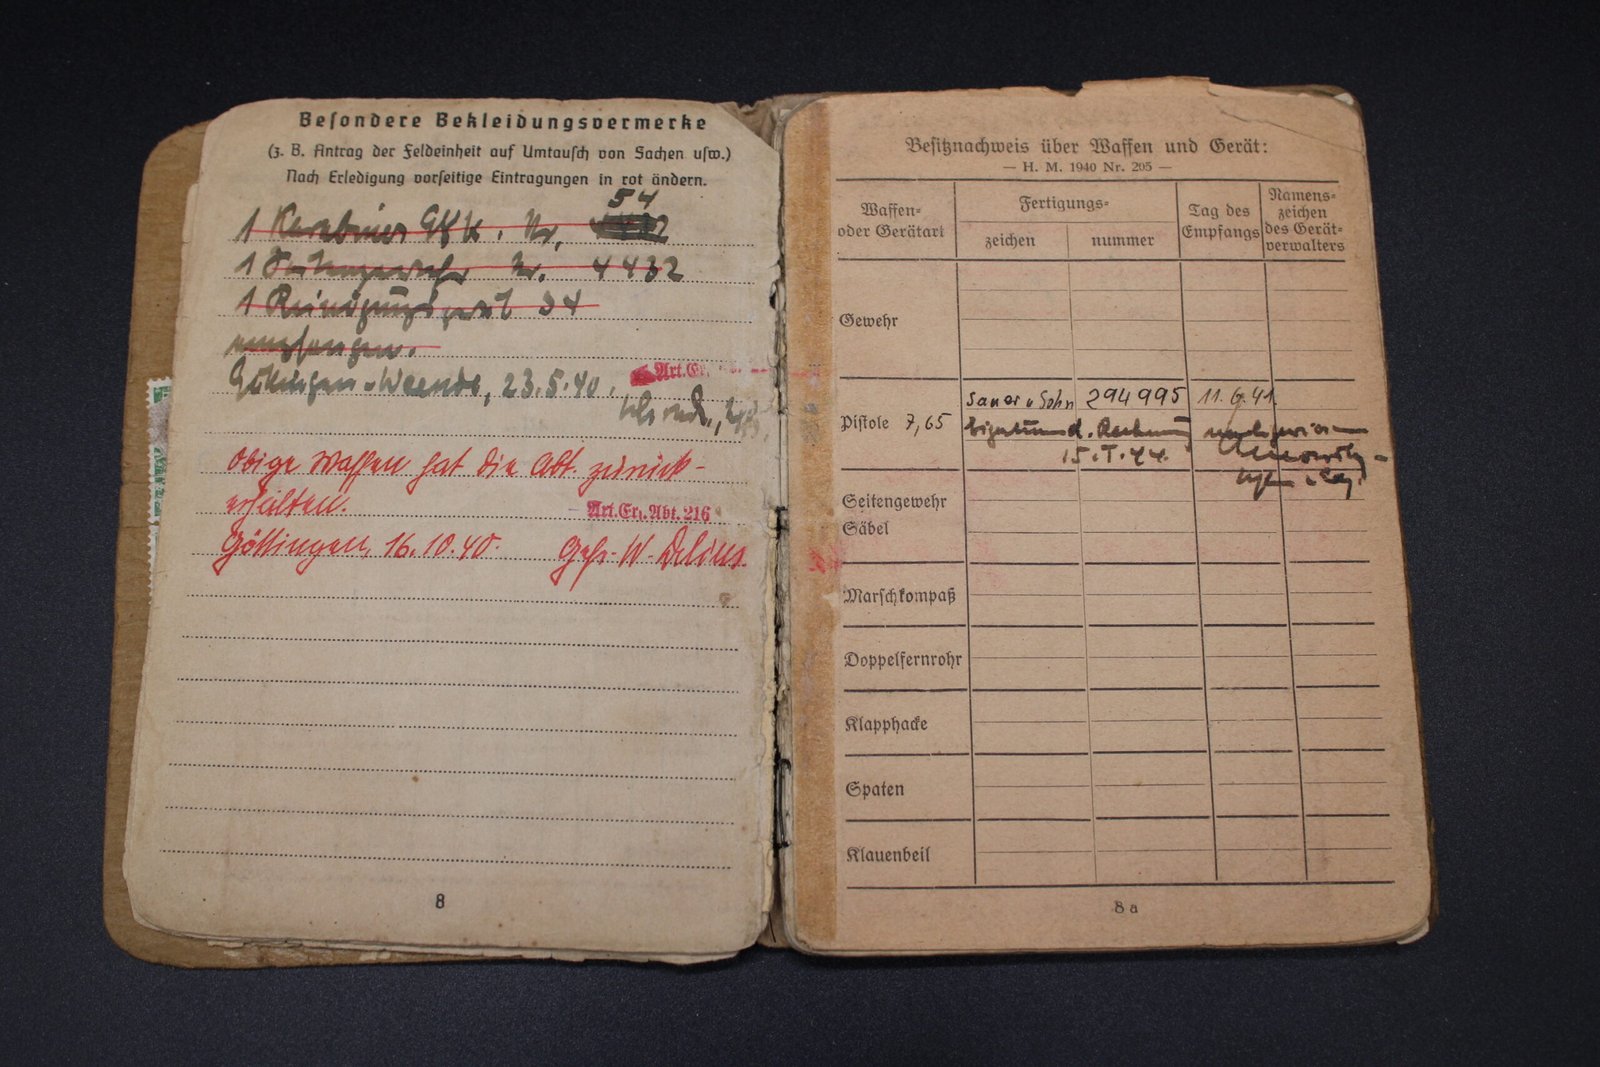 Besondere Bekleidungsvermerke
(z. B. Antrag der Feldeinheit auf Umtausch von Sachen usw.)
Nach Erledigung vorseitige Eintragungen in rot ändern.
54
1 Karabiner 98k. Nr.
1 Seitengewehr Nr. 4432
1 Reinigungsgerät 34
empfangen.
Göttingen-Weende, 23.5.40.
Art.Er.
Obige Waffen hat die Abt. zurück-
erhalten.
Art.Er.Abt. 216
Göttingen, 16.10.40. Gefr. W. Delius
8
Besitznachweis über Waffen und Gerät:
— H. M. 1940 Nr. 205 —
Waffen-
oder Gerätart
Fertigungs-
zeichen
nummer
Tag des
Empfangs
Namens-
zeichen
des Gerät-
verwalters
Gewehr
Pistole 7,65
Sauer u Sohn 294995 11.6.41.
Eigentum d. Rechnung
Seitengewehr
Säbel
Marschkompaß
Doppelfernrohr
Klapphacke
Spaten
Klauenbeil
8 a